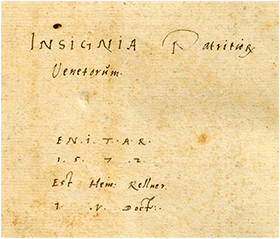 INSIGNIA Patritioꝝ
Venetorum.
E N. I. T. A. R.
1. 5. 7. 2.
Est Heinr: Kellner.
I. V. Doct:.